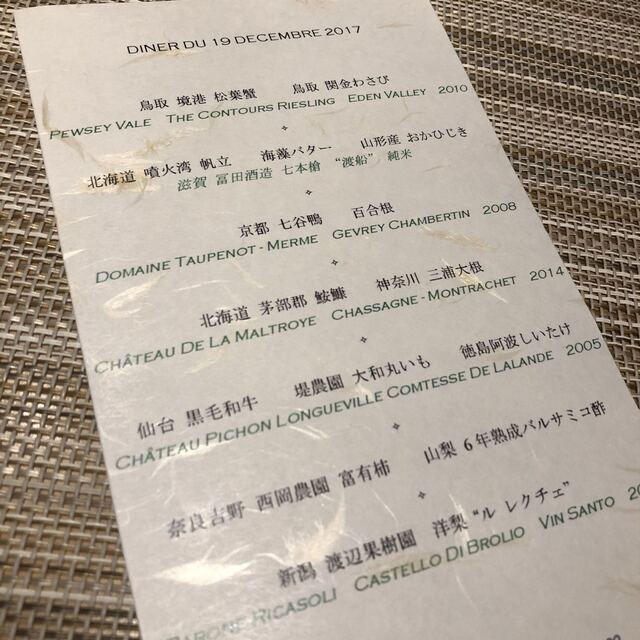 DINER DU 19 DECEMBRE 2017
鳥取 境港 松葉蟹 鳥取 関金わさび
PEWSEY VALE THE CONTOURS RIESLING EDEN VALLEY 2010
北海道 噴火湾 帆立 海藻バター 山形産 おかひじき
滋賀 冨田酒造 七本槍 “渡船” 純米
京都 七谷鴨 百合根
DOMAINE TAUPENOT - MERME GEVREY CHAMBERTIN 2008
北海道 茅部郡 鮟鱇 神奈川 三浦大根
CHÂTEAU DE LA MALTROYE CHASSAGNE - MONTRACHET 2014
仙台 黒毛和牛 堤農園 大和丸いも 徳島阿波しいたけ
CHÂTEAU PICHON LONGUEVILLE COMTESSE DE LALANDE 2005
奈良吉野 西岡農園 富有柿 山梨 6年熟成バルサミコ酢
新潟 渡辺果樹園 洋梨 “ル レクチェ”
BARONE RICASOLI CASTELLO DI BROLIO VIN SANTO